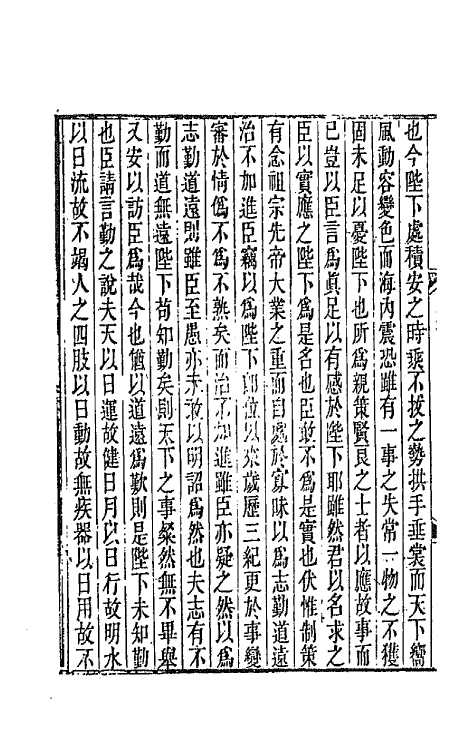 也今陛下處積安之時乘不拔之勢拱手垂裳而天下嚮
風動容變色而海內震恐雖有一事之失常一物之不獲
固未足以憂陛下也所爲親策賢良之士者以應故事而
已豈以臣言爲眞足以有感於陛下耶雖然君以名求之
臣以實應之陛下爲是名也臣敢不爲是實也伏惟制策
有念祖宗先帝大業之重而自處於寡昧以爲志勤道遠
治不加進臣竊以爲陛下卽位以來歲歷三紀更於事變
審於情僞不爲不熟矣而治不加進雖臣亦疑之然以爲
志勤道遠則雖臣至愚亦未敢以明詔爲然也夫志有不
勤而道無遠陛下苟知勤矣則天下之事粲然無不畢舉
又安以訪臣爲哉今也猶以道遠爲歎則是陛下未知勤
也臣請言勤之說夫天以日運故健日月以日行故明水
以日流故不竭人之四肢以日動故無疾器以日用故不